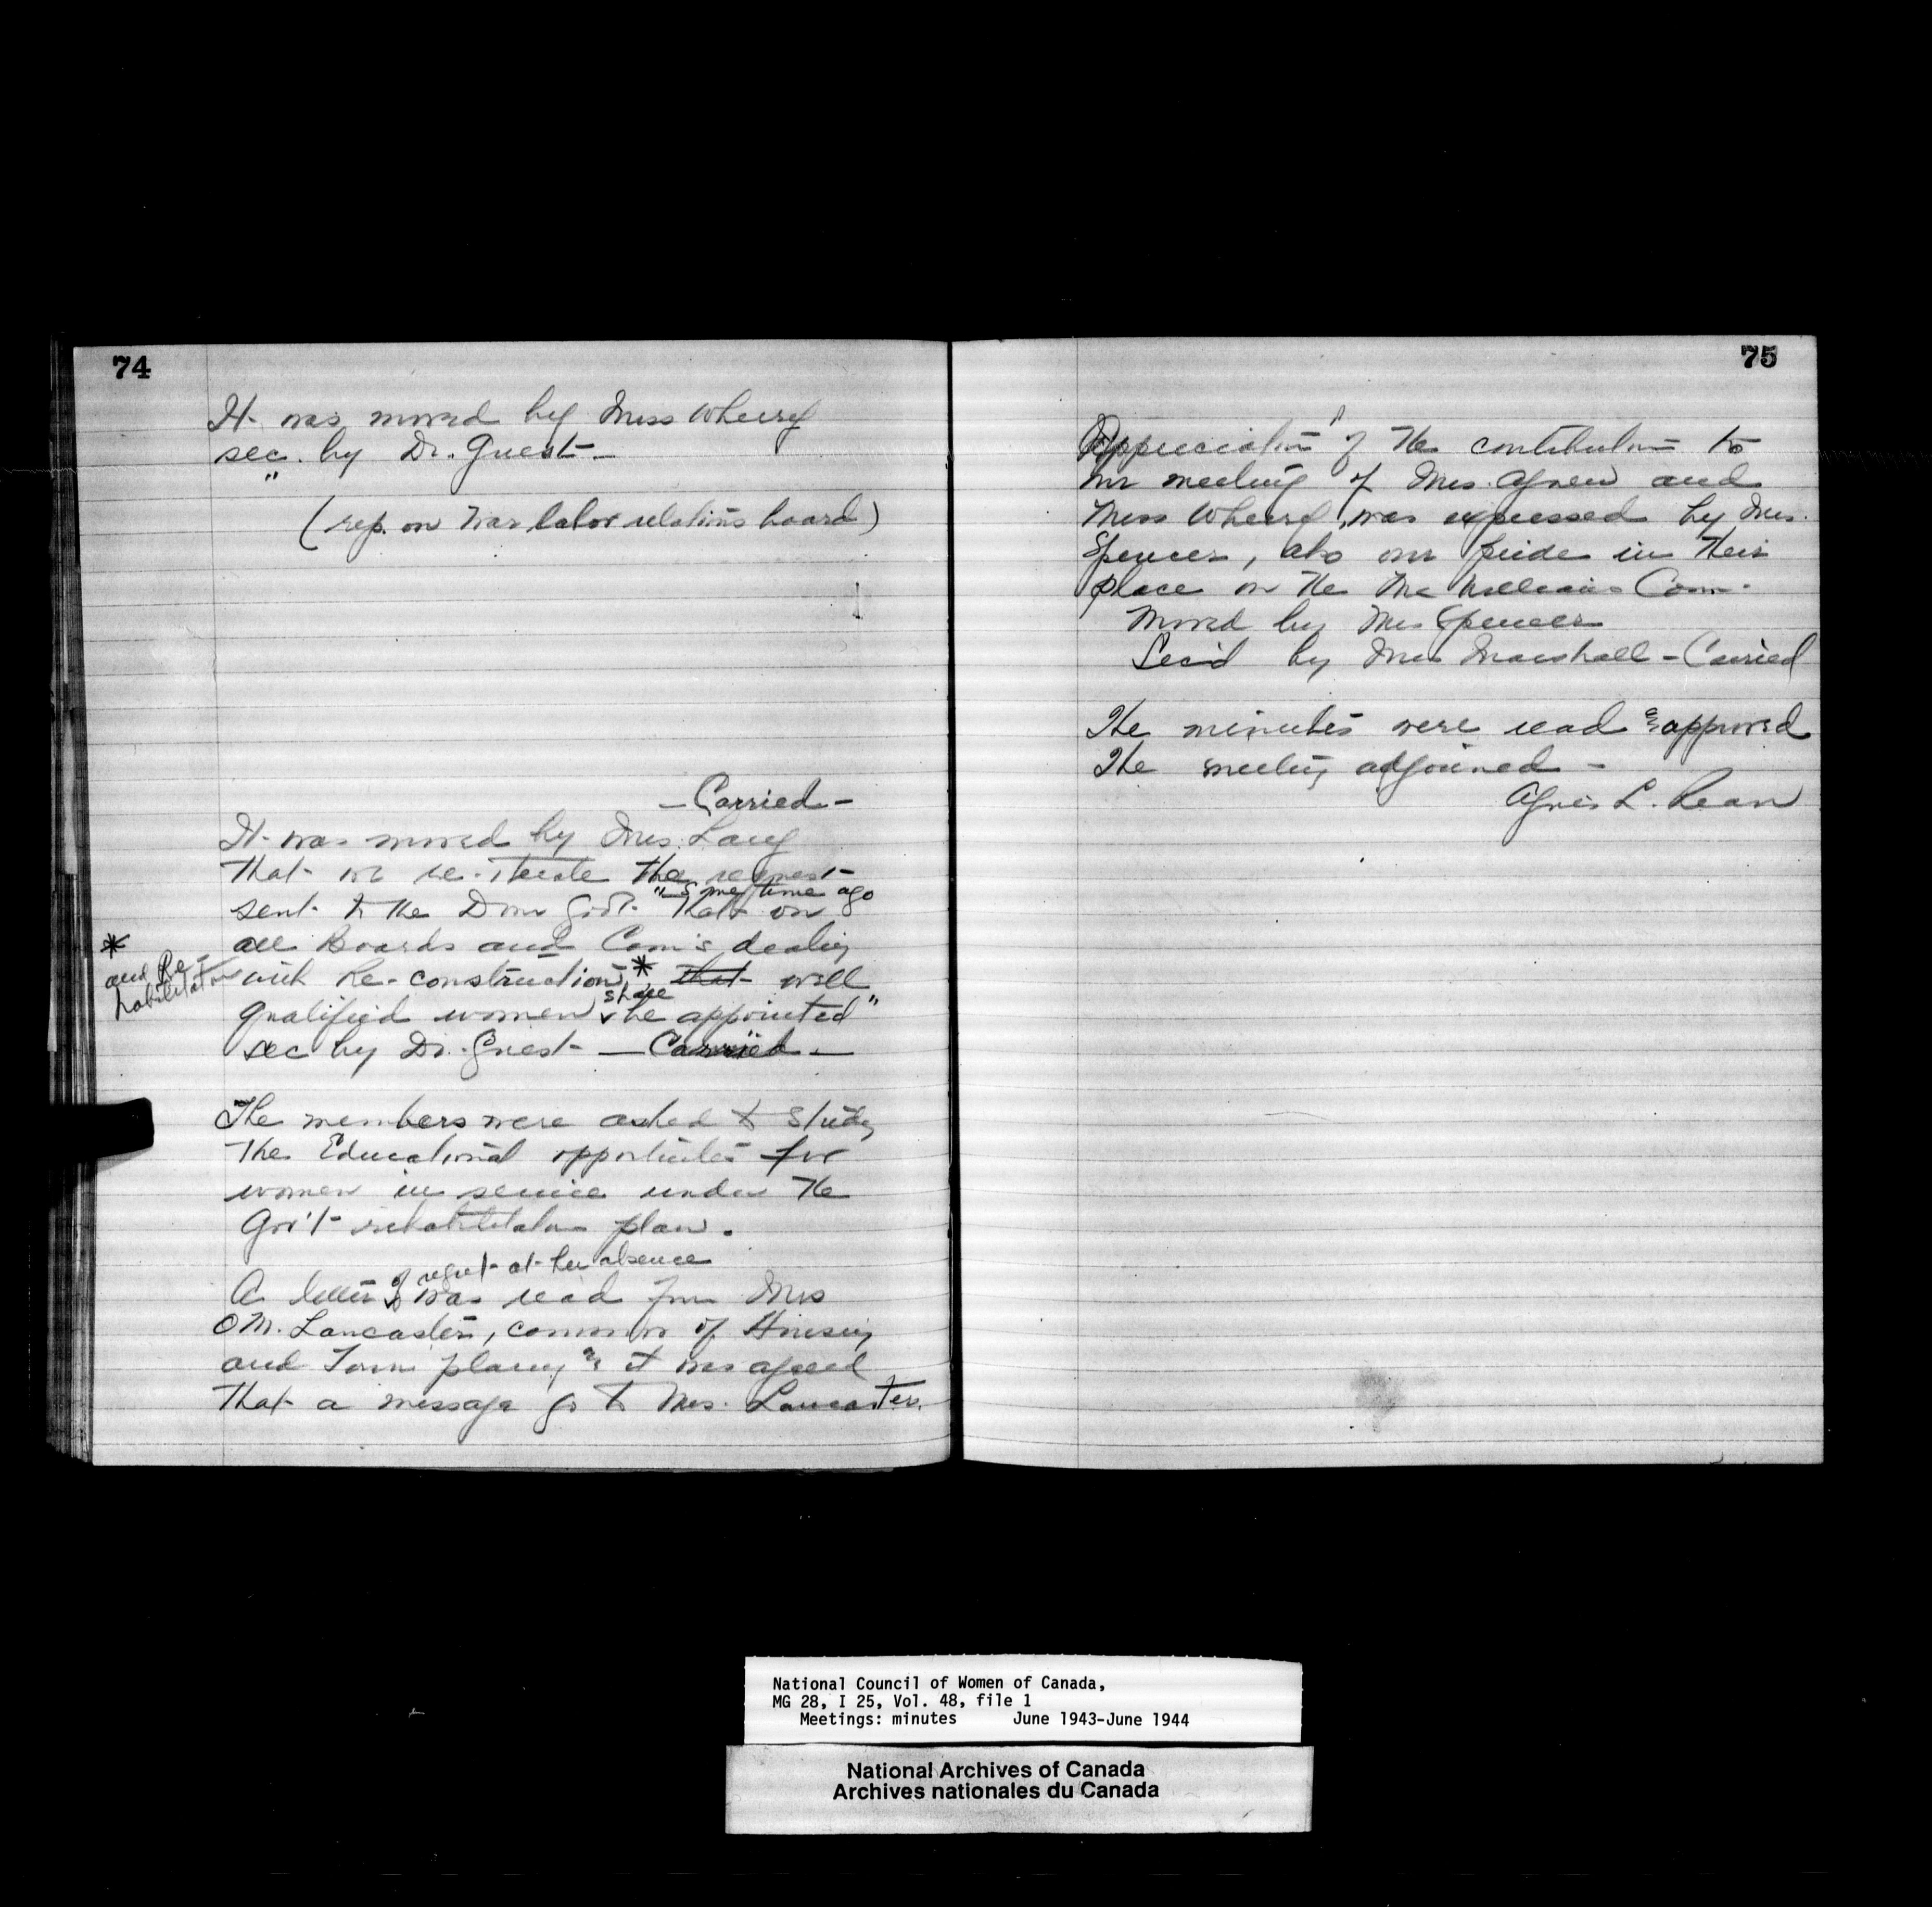 74
It was moved by Miss Wherry
sec. by Dr. Guest —
"
(rep. on War labor relations board)
— Carried —
It was moved by Mrs. Lang
that we re-iterate the request
some time ago
sent to the Dom Gov't. "that on
all Boards and Com's dealing
* and Re-habilitation
with Re-construction * that well
shall
qualified women be appointed"
sec by Dr. Guest — Carried —
The members were asked to study
the Educational opportunities for
women in service under the
Gov't rehabilitation plan.
of regret at her absence
A letter was read from Mrs
O M. Lancaster, convenor of Housing
and Town planning & it was agreed
that a message go to Mrs. Lancaster.
75
Appreciation of the contribution to
our meeting of Mrs. Agnew and
Miss Wherry, was expressed by Mrs.
Spencer, also our pride in their
place on the McWilliams Com.
Moved by Mrs Spencer
Sec'd by Mrs Marshall — Carried
The minutes were read & approved
The meeting adjourned —
Agnes L.
National Council of Women of Canada,
MG 28, I 25, Vol. 48, file 1
Meetings: minutes June 1943-June 1944
National Archives of Canada
Archives nationales du Canada